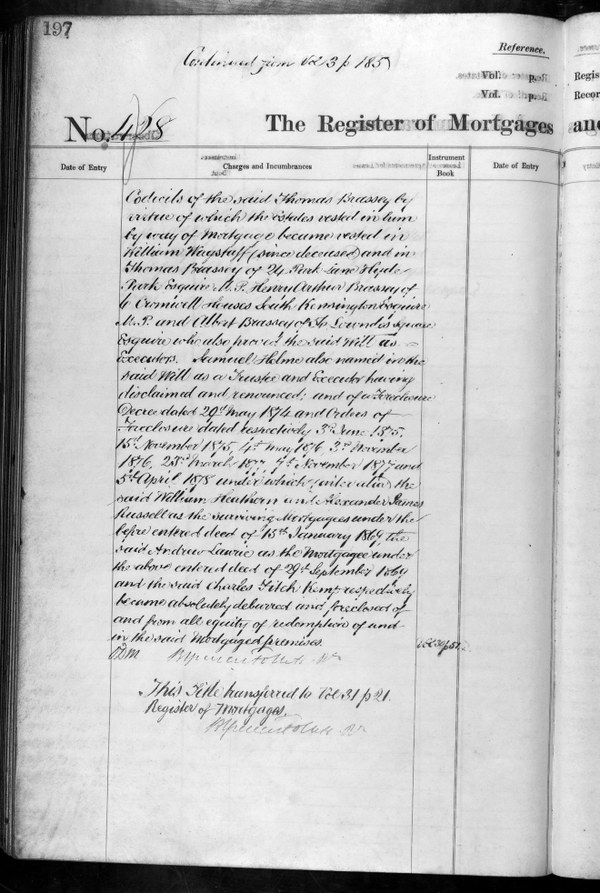 197
Continued from Vol 3 p 185
Reference.
Vol. p.
Vol. p.
Regis
Recor
No. 428
The Register of Mortgages and
Date of Entry
Charges and Incumbrances
Instrument Book
Date of Entry
Codicils of the said Thomas Brassey by
virtue of which the Estates vested in him
by way of Mortgage became vested in
William Wagstaff (since deceased) and in
Thomas Brassey of 24 Park Lane Hyde
Park Esquire M.P. Henry Arthur Brassey of
6 Cromwell Houses South Kensington Esquire
M.P. and Albert Brassey of Lowndes Square
Esquire who also proved the said Will as
Executors. Samuel Helme also named in the
said Will as a Trustee and Executor having
disclaimed and renounced; and of a Foreclosure
Decree dated 29th May 1874 and Orders of
Foreclosure dated respectively 3rd June 1875,
15th November 1875, 4th May 1876 3rd November
1876, 23rd March 1877 7th November 1877 and
5th April 1878 under which (inter alia) the
said William Heathorn and Alexander James
Russell as the surviving Mortgagees under the
before entered deed of 15th January 1869 the
said Andrew Lawrie as the Mortgagee under
the above entered deed of 29th September 1869
and the said Charles Fitch Kemp respectively
became absolutely debarred and foreclosed of
and from all equity of redemption of and
in the said Mortgaged premises.
This Title transferred to Vol 31 p 21.
Register of Mortgages.